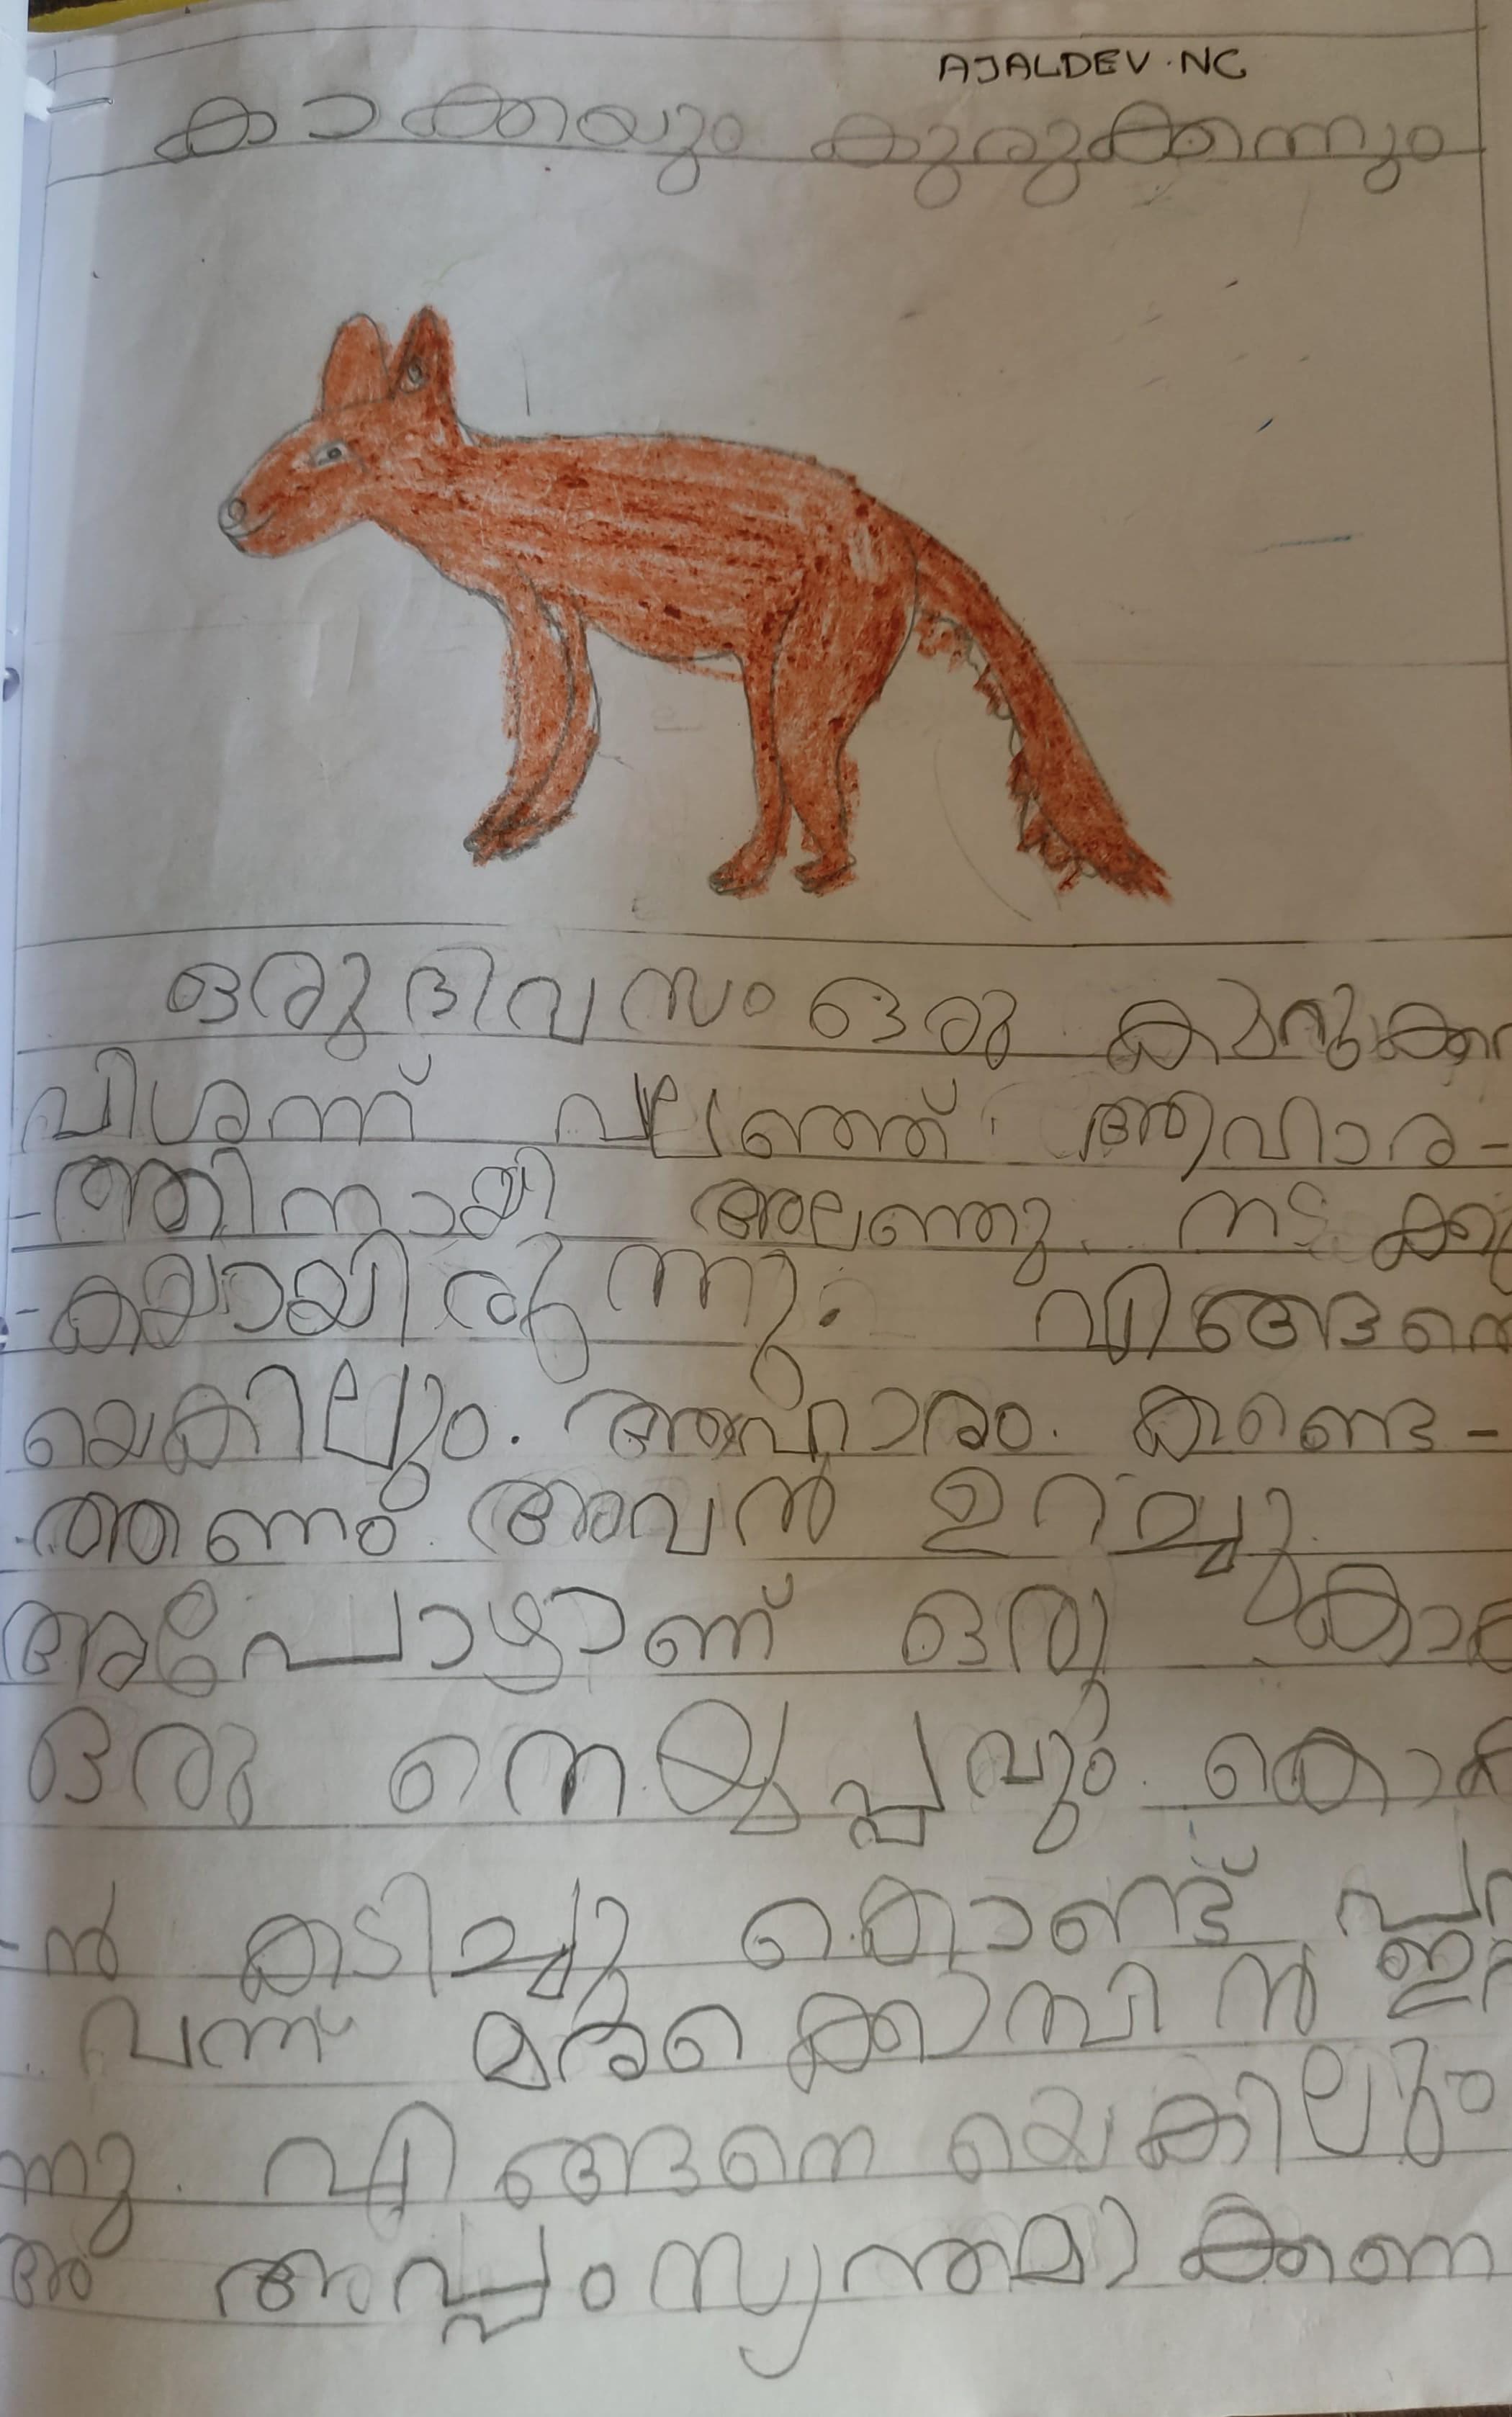 AJALDEV.NG
കാക്കയും കുരുക്കന്നും
ഒരു ദിവസം ഒരു
വിശന്ന് വലഞ്ഞ് ആഹാര-
-ത്തിനായി അലഞ്ഞു നടക്കു
-കയായിരുന്നു. എങ്ങനെ
യെങ്കിലും. ആഹാരം. കണ്ടെ-
-ത്തണം അവൻ ഉറച്ചു
അപ്പോഴാണ് ഒരു
ഒരു നെയ്യപ്പവും
-ൻ കടിച്ചു കൊണ്ട്
വന്ന് മരക്കൊമ്പിൻ
ന്നു. എങ്ങനെ യെകിലും
ആ അപ്പം സ്വന്തമാക്കണ